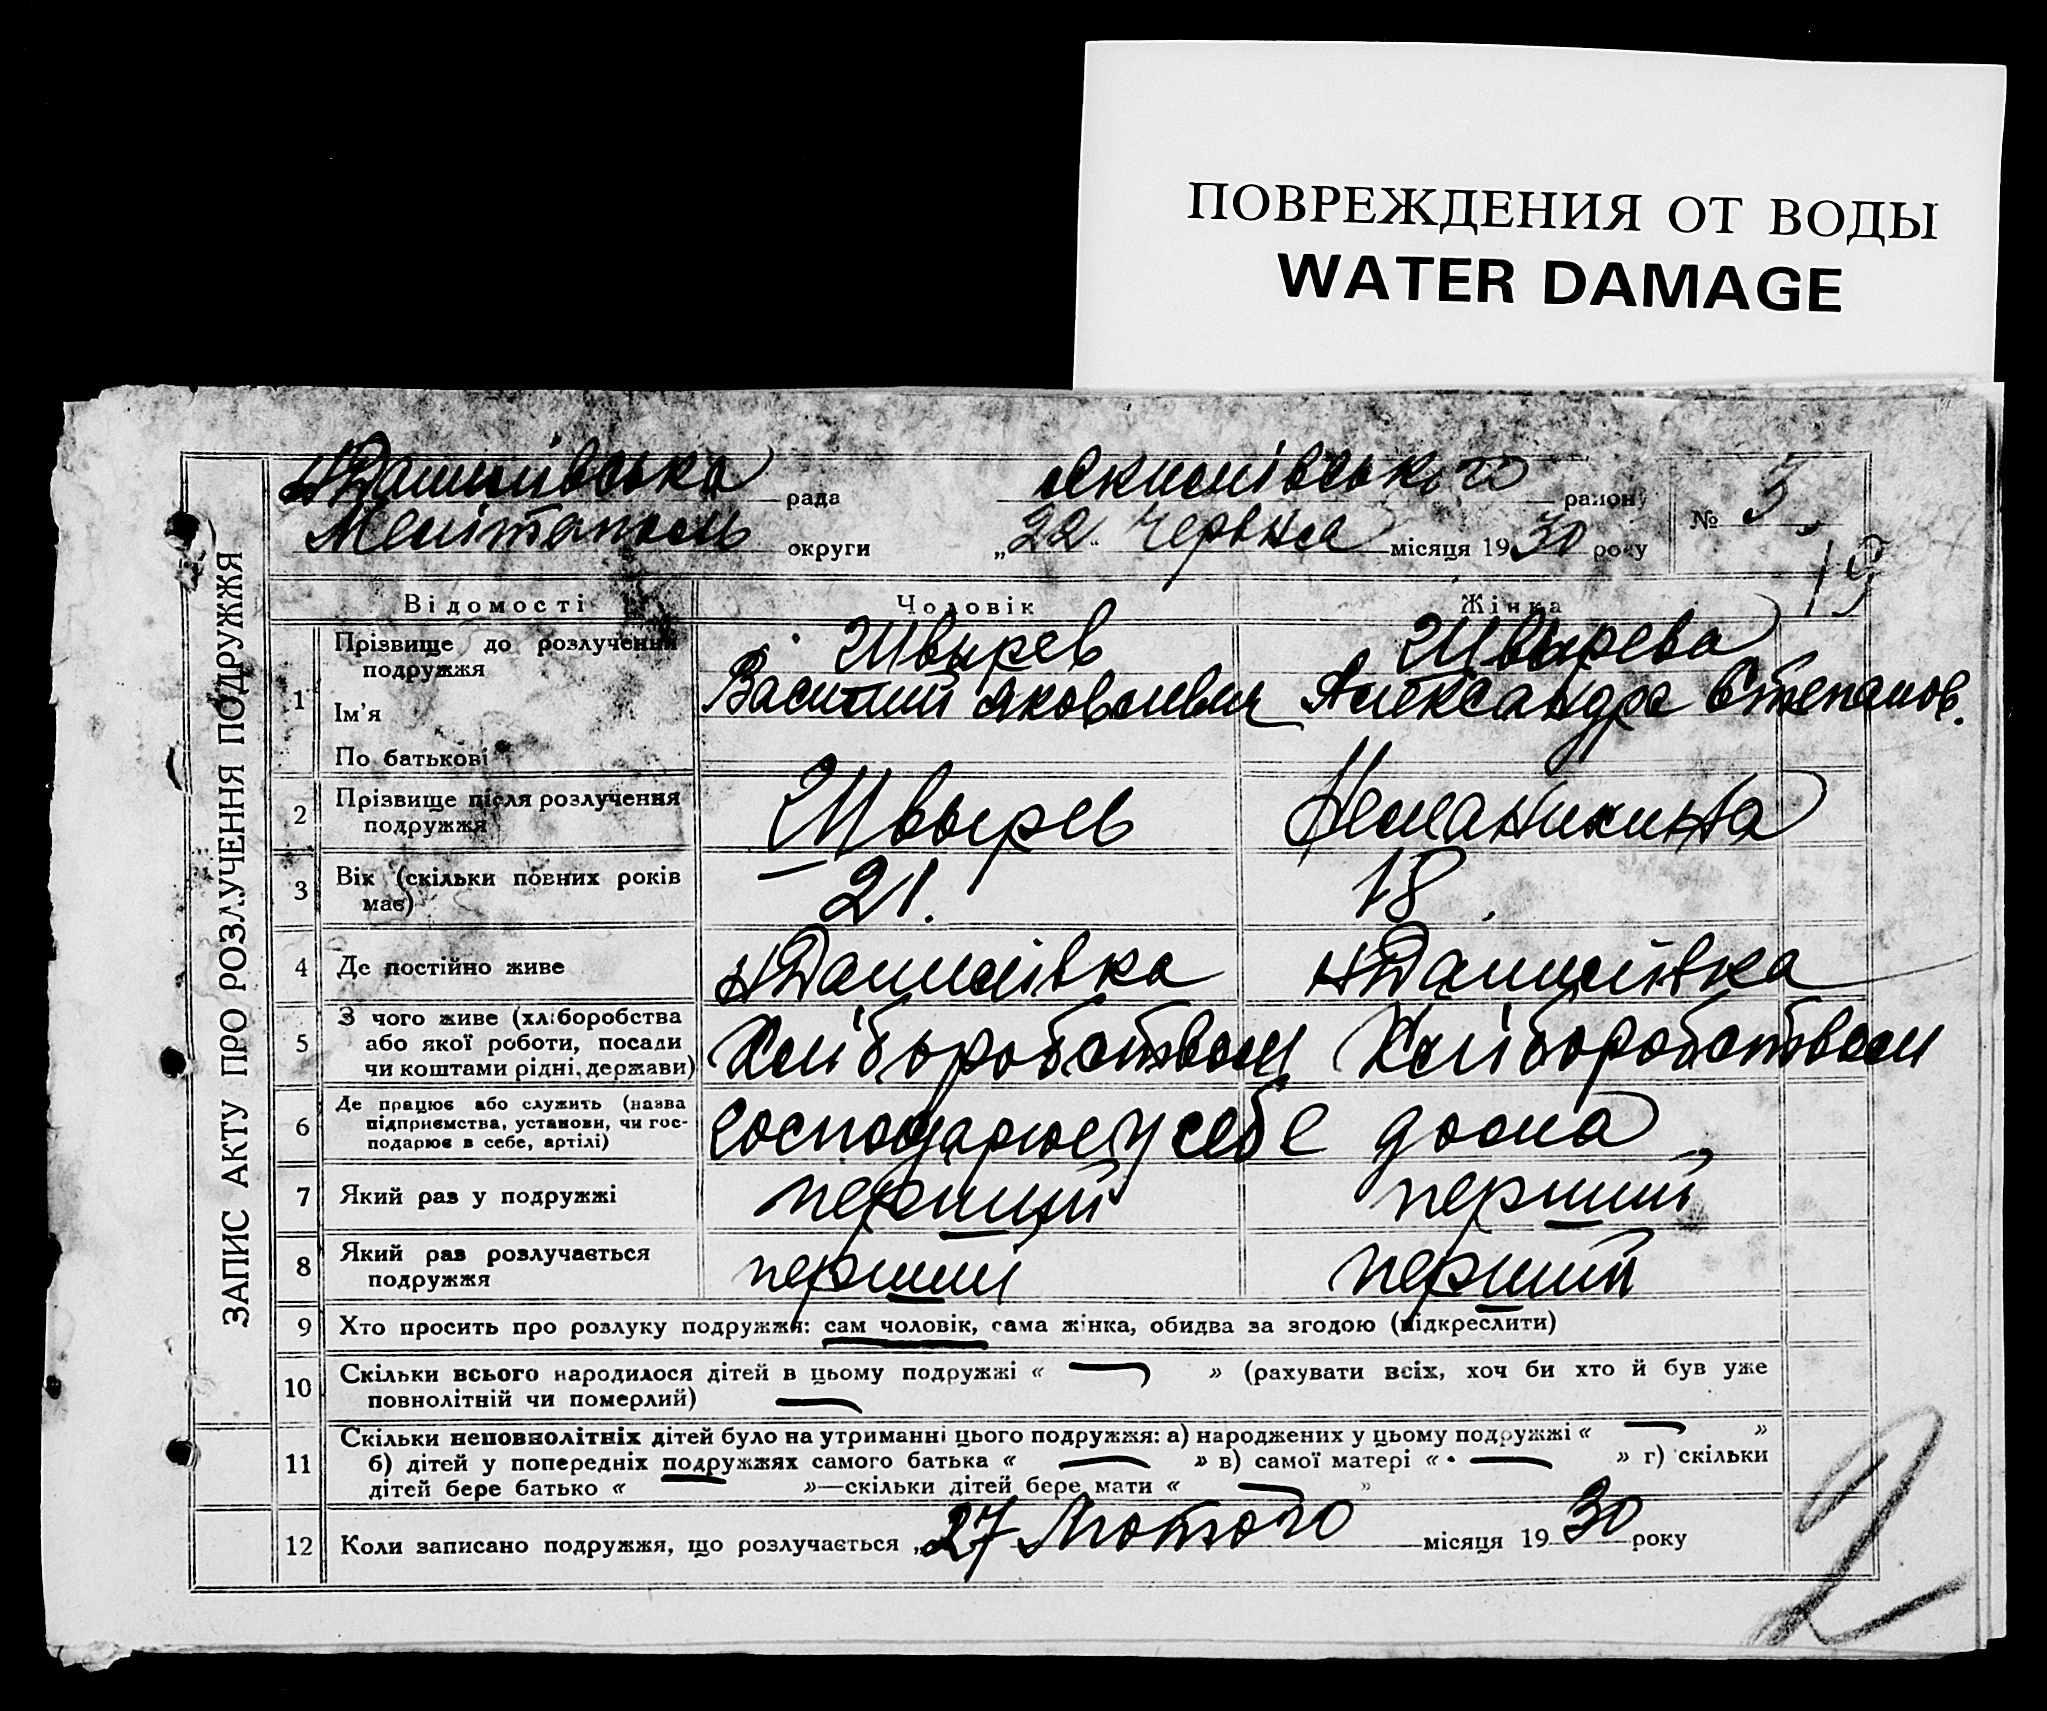 ПОВРЕЖДЕНИЯ ОТ ВОДЫ
WATER DAMAGE
НДанилівська рада Якимівського району № 3
Мелітополь округи „22" Червня місяця 1930 року
19
ЗАПИС АКТУ ПРО РОЗЛУЧЕННЯ ПОДРУЖЖЯ
Відомості Чоловік Жінка
1 Прізвище до розлучення подружжя Швырев Швырева
Ім'я Василий Яковлевич Александра Степанов.
По батькові
2 Прізвище після розлучення
подружжя Швырев
3 Вік (скільки повних років
має) 21. 18
4 Де постійно живе НДанилівка НДанилівка
5 З чого живе (хліборобства
або якої роботи, посади
чи коштами рідні, держави) Хліборобством Хліборобством
6 Де працює або служить (назва
підприємства, установи, чи гос-
подарює в себе, артілі) господарює у себе дома
7 Який раз у подружжі перший перший
8 Який раз розлучається
подружжя перший перший
9 Хто просить про розлуку подружжя: сам чоловік, сама жінка, обидва за згодою (підкреслити)
10 Скільки всього народилося дітей в цьому подружжі « — » (рахувати всіх, хоч би хто й був уже
повнолітній чи померлий) —
11 Скільки неповнолітніх дітей було на утриманні цього подружжя: а) народжених у цьому подружжі « — »
б) дітей у попередніх подружжях самого батька « — » в) самої матері « — » г) скільки
дітей бере батько « — »—скільки дітей бере мати « — »
12 Коли записано подружжя, що розлучається „27 Лютого місяця 1930 року
2